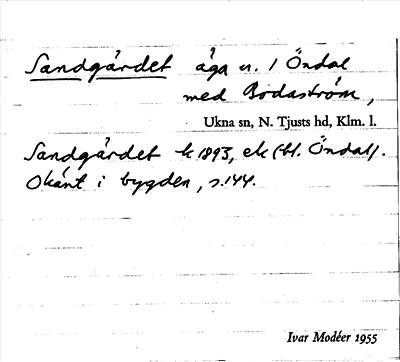 Sandgärdet äga nr. 1 Öndal
med Bodaström,
Ukna sn, N. Tjusts hd, Klm. l.
Sandgärdet k 1893, ek (bl. Öndal).
Okänt i bygden, s. 144.
Ivar Modéer 1955